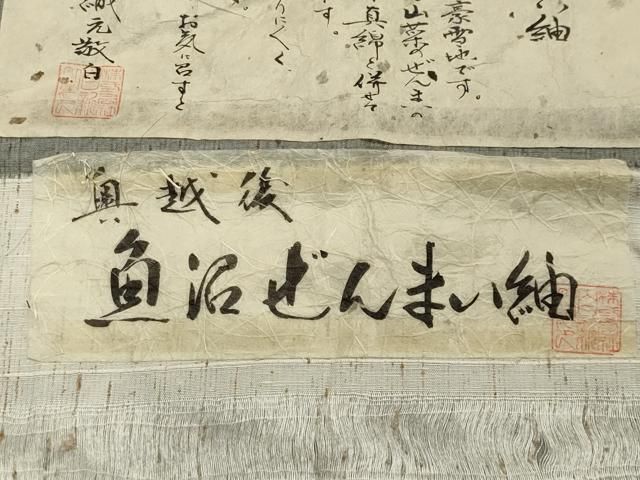 い紬
豪雪地です。
山菜のぜんまいの
真綿と併せ
す。
りにくく、
お気に召すと
織元敬白
奥越後
魚沼ぜんまい紬